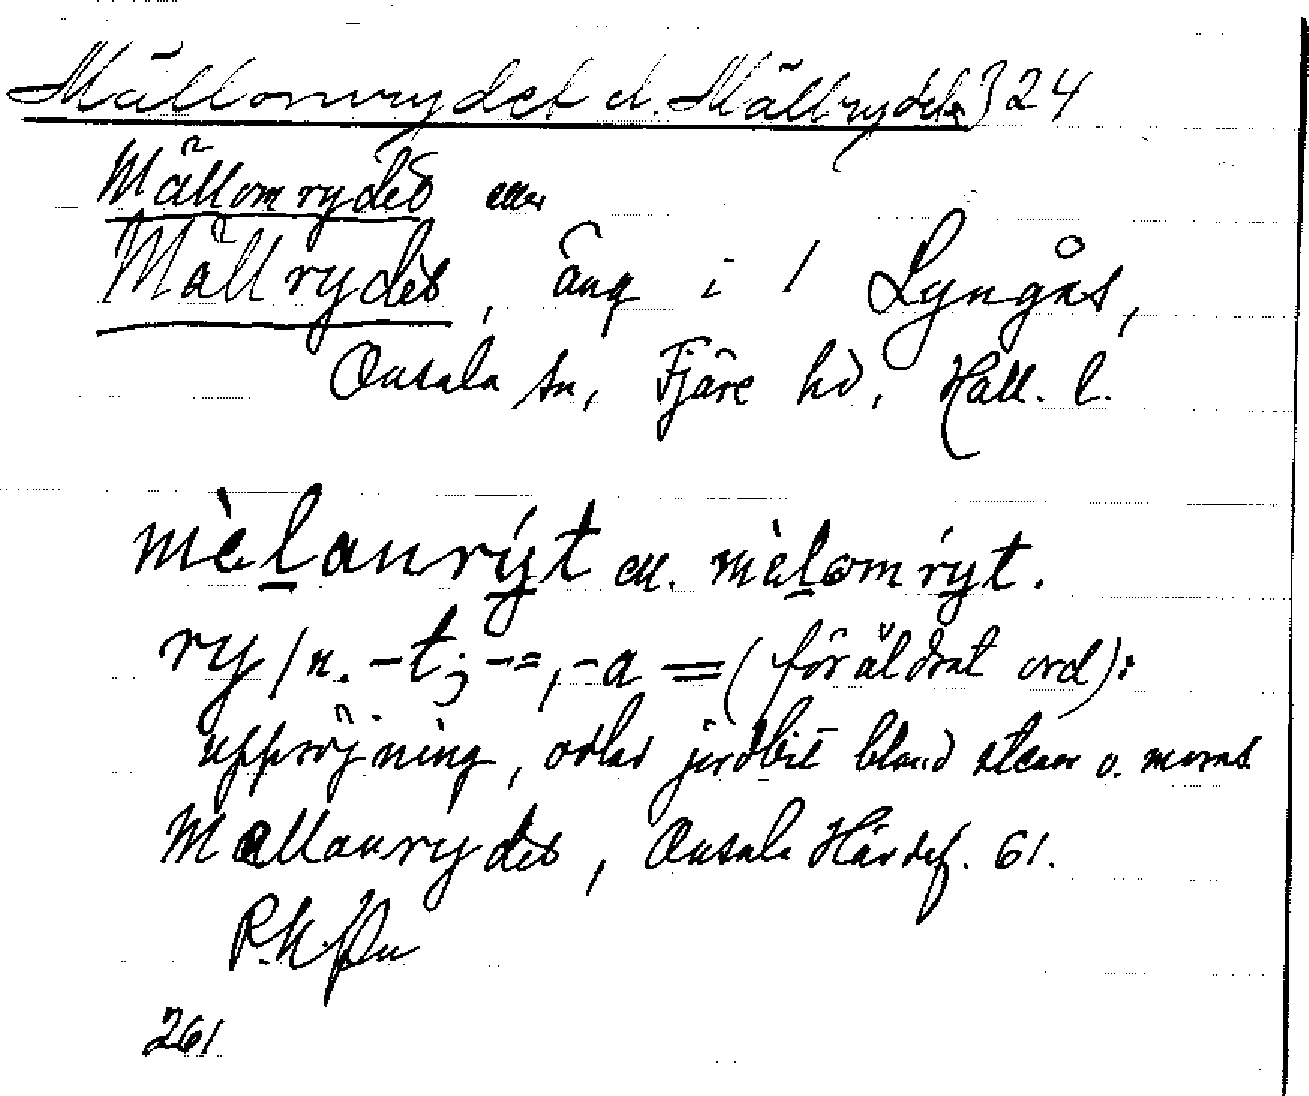 Mällomrydet el. Mällrydet 324
Mällomrydet eller
Mällrydet, äng i 1 Lyngås,
Onsala sn, Fjäre hd, Hall. l.
mèlanrýt ell. mèlomrýt.
ry/n. -t; -=, -a = (föräldrat ord):
uppröjning, odlad jordbit bland stenar o. moras
Mellanrydet, Onsala Härdef. 61.
261